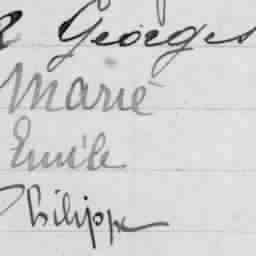 Georges
Marie
Emile
Philippe